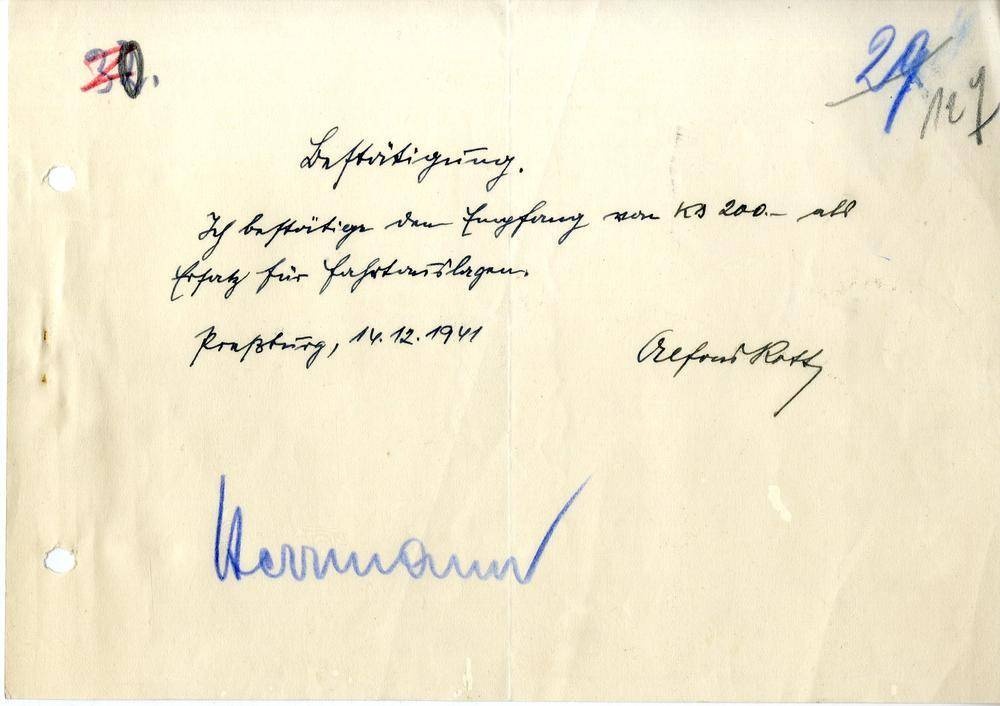 30.
29
127
Bestätigung.
Ich bestätige den Empfang von Ks 200.- als
Ersatz für Fahrtauslagen.
Preßburg, 14.12.1941
Alfons Rott
Herrmann